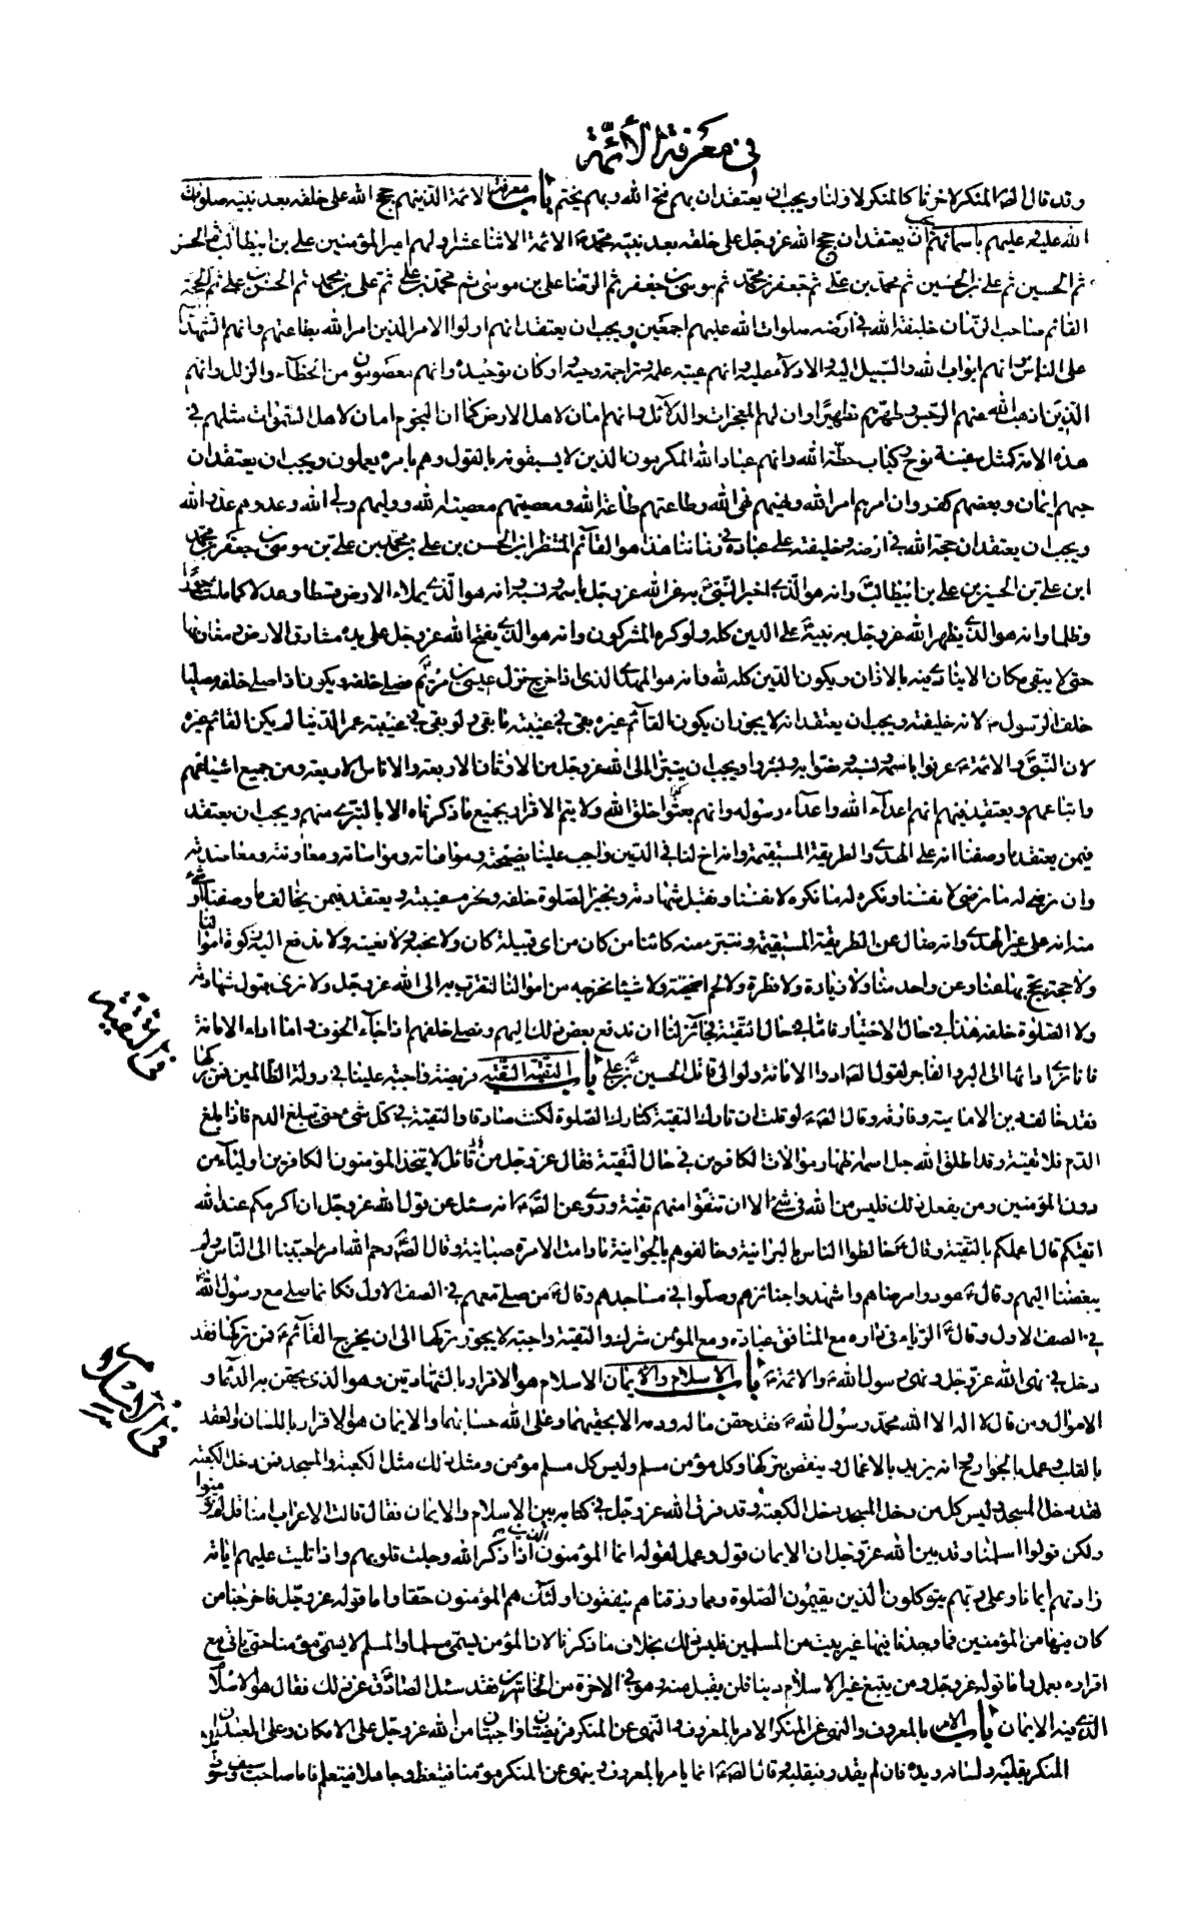 في معرفة الأئمة
وقد قال الصادق المنكر لآخرنا كالمنكر لأولنا ويجب ان يعتقد ان بهم فتح الله وبهم يختم باب معرفة الائمة الذين هم حجج الله على خلقه بعد نبيه صلوات
الله عليه وعليهم باسمائهم يجب ان يعتقد ان حجج الله عز وجل على خلقه بعد نبيه محمد الائمة الاثنا عشر اولهم امير المؤمنين علي بن ابيطالب ثم الحسن
ثم الحسين ثم علي بن الحسين ثم محمد بن علي ثم جعفر بن محمد ثم موسى بن جعفر ثم الرضا علي بن موسى ثم محمد بن علي ثم علي بن محمد ثم الحسن بن علي ثم الحجة
القائم صاحب الزمان خليفة الله في ارضه صلوات الله عليهم اجمعين ويجب ان يعتقد انهم اولوا الامر الذين امر الله بطاعتهم وانهم الشهداء
على الناس وانهم ابواب الله والسبيل اليه والادلاء عليه وانهم عيبة علمه وتراجمة وحيه واركان توحيده وانهم معصومون من الخطآء والزلل وانهم
الذين اذهب الله عنهم الرجس وطهرهم تطهيرا وان لهم المعجزات والدلآئل وانهم امان لاهل الارض كما ان النجوم امان لاهل السموات مثلهم في
هذه الامة كمثل سفينة نوح وكباب حطة الله وانهم عباد الله المكرمون الذين لا يسبقونه بالقول وهم بامره يعملون ويجب ان يعتقد ان
حبهم ايمان وبغضهم كفر وان امرهم امر الله ونهيهم نهي الله وطاعتهم طاعة الله ومعصيتهم معصية الله ووليهم ولي الله وعدوهم عدو الله
ويجب ان يعتقد ان حجة الله في ارضه وخليفته على عباده في زماننا هذا هو القآئم المنتظر ابن الحسن بن علي بن محمد بن علي بن موسى بن جعفر بن محمد
ابن علي بن الحسين بن علي بن ابيطالب وانه هو الذي اخبر النبي به عن الله عز وجل باسمه ونسبه وانه هو الذي يملاء الارض قسطا وعدلا كما ملئت جورا
وظلما وانه هو الذي يظهر الله عز وجل به نبيه على الدين كله ولو كره المشركون وانه هو الذي يفتح الله عز وجل على يده مشارق الارض ومغاربها
حتى لا يبقى مكان الا ينادى فيه بالاذان ويكون الدين كله لله وانه هو المهدي الذي اذا خرج نزل عيسى بن مريم فصلى خلفه ويكون اذا صلى خلفه مصليا
خلف الرسول لانه خليفته ويجب ان يعتقد انه لا يجوز ان يكون القآئم غيره بقي في غيبته ما بقي ولو بقي في غيبته عمر الدنيا لم يكن القائم غيره
لان النبي والائمة عرفوا باسمه ونسبه ونصوا به وبشروا ويجب ان يتبرا الى الله عز وجل من الاوثان الاربعة والاناث الاربعة ومن جميع اشياعهم
واتباعهم ويعتقد فيهم انهم اعدآء الله واعدآء رسوله وانهم شر خلق الله ولا يتم الاقرار بجميع ما ذكرناه الا بالتبري منهم ويجب ان يعتقد
فيمن يعتقد ما وصفنا انه على الهدى والطريقة المستقيمة وانه اخ لنا في الدين واجب علينا نصيحته ومواساته ومعاونته ومعاضدته
وان نرضى له ما نرضى لانفسنا ونكره له ما نكره لانفسنا ونقبل شهادته ونجيز الصلوة خلفه ونحرم غيبته ويعتقد فيمن يخالف ما وصفناه او شيء
منه انه على غير الهدى وانه ضال عن الطريقة المستقيمة ونتبرء منه كائنا من كان من اى قبيلة كان ولا نحبه ولا نعينه ولا ندفع اليه زكوة اموالنا
ولا حجة يحج بها عنا وعن واحد منا ولا زيارة ولا فطرة ولا لحم اضحية ولا شيئا نخرجه من اموالنا لنتقرب به الى الله عز وجل ولا نرى قبول شهادته
ولا الصلوة خلفه هذا في حال الاختيار فاما في حال التقية فجآئز لنا ان ندفع بعض ذلك اليهم ونصلي خلفهم اذا جآء الخوف واما اداء الامانة
فانا نرى ادائها الى البر والفاجر لقول الصادق ادوا الامانة ولو الى قاتل الحسين بن علي باب التقية التقية فريضة واجبة علينا في دولة الظالمين فمن تركها
فقد خالف دين الامامية وفارقه وقال الصادق لو قلت ان تارك التقية كتارك الصلوة لكنت صادقا والتقية في كل شيء حتى يبلغ الدم فاذا بلغ
الدم فلا تقية وقد اطلق الله جل اسمه اظهار موالاة الكافرين في حال التقية فقال عز وجل من قائل لا يتخذ المؤمنون الكافرين اوليآء من
دون المؤمنين ومن يفعل ذلك فليس من الله في شيء الا ان تتقوا منهم تقية وروي عن الصادق انه سئل عن قول الله عز وجل ان اكرمكم عند الله
اتقيكم قال اعملكم بالتقية وقال خالطوا الناس بالبرانية وخالفوهم بالجوانية ما دامت الامرة صبيانية وقال الصادق رحم الله امرءا حببنا الى الناس ولم
يبغضنا اليهم وقال عودوا مرضاهم واشهدوا جنائزهم وصلوا في مساجدهم وقال من صلى معهم في الصف الاول فكانما صلى مع رسول الله
في الصف الاول وقال الرياء في داره مع المنافق عبادة ومع المؤمن شرك والتقية واجبة لا يجوز تركها الى ان يخرج القآئم فمن تركها فقد
دخل في نهي الله عز وجل ونهي رسول الله والائمة باب الاسلام والايمان الاسلام هو الاقرار بالشهادتين وهو الذي يحقن به الدماء و
الاموال ومن قال لا اله الا الله محمد رسول الله فقد حقن ماله ودمه الا بحقيهما وعلى الله حسابهما والايمان هو الاقرار باللسان والعقد
بالقلب وعمل بالجوارح وانه يزيد بالاعمال وينقص بتركها وكل مؤمن مسلم وليس كل مسلم مؤمن ومثل ذلك مثل الكعبة والمسجد فمن دخل الكعبة
فقد دخل المسجد وليس كل من دخل المسجد دخل الكعبة وقد فرق الله عز وجل في كتابه بين الاسلام والايمان فقال قالت الاعراب امنا قل لم تؤمنوا
ولكن قولوا اسلمنا وقد بين الله عز وجل ان الايمان قول وعمل لقوله انما المؤمنون الذين اذا ذكر الله وجلت قلوبهم واذا تليت عليهم اياته
زادتهم ايمانا وعلى ربهم يتوكلون الذين يقيمون الصلوة ومما رزقناهم ينفقون اولئك هم المؤمنون حقا واما قوله عز وجل فاخرجنا من
كان فيها من المؤمنين فما وجدنا فيها غير بيت من المسلمين فليس ذلك بخلاف ما ذكرنا لان المؤمن يسمى مسلما والمسلم لا يسمى مؤمنا حتى يأتي مع
اقراره بعمل واما قوله عز وجل ومن يبتغ غير الاسلام دينا فلن يقبل منه وهو في الاخرة من الخاسرين فقد سئل الصادق عن ذلك فقال هو الاسلام
الذي فيه الايمان باب الامر بالمعروف والنهي عن المنكر الامر بالمعروف والنهي عن المنكر فريضتان واجبتان من الله عز وجل على الامكان وعلى العبد ان
المنكر بقلبه ولسانه ويده فان لم يقدر فبقلبه وقال الصادق انما يامر بالمعروف وينهى عن المنكر مؤمنا فيتعظ وجاهلا فيتعلم فاما صاحب سيف وسوط
في التقية
في الاسلام